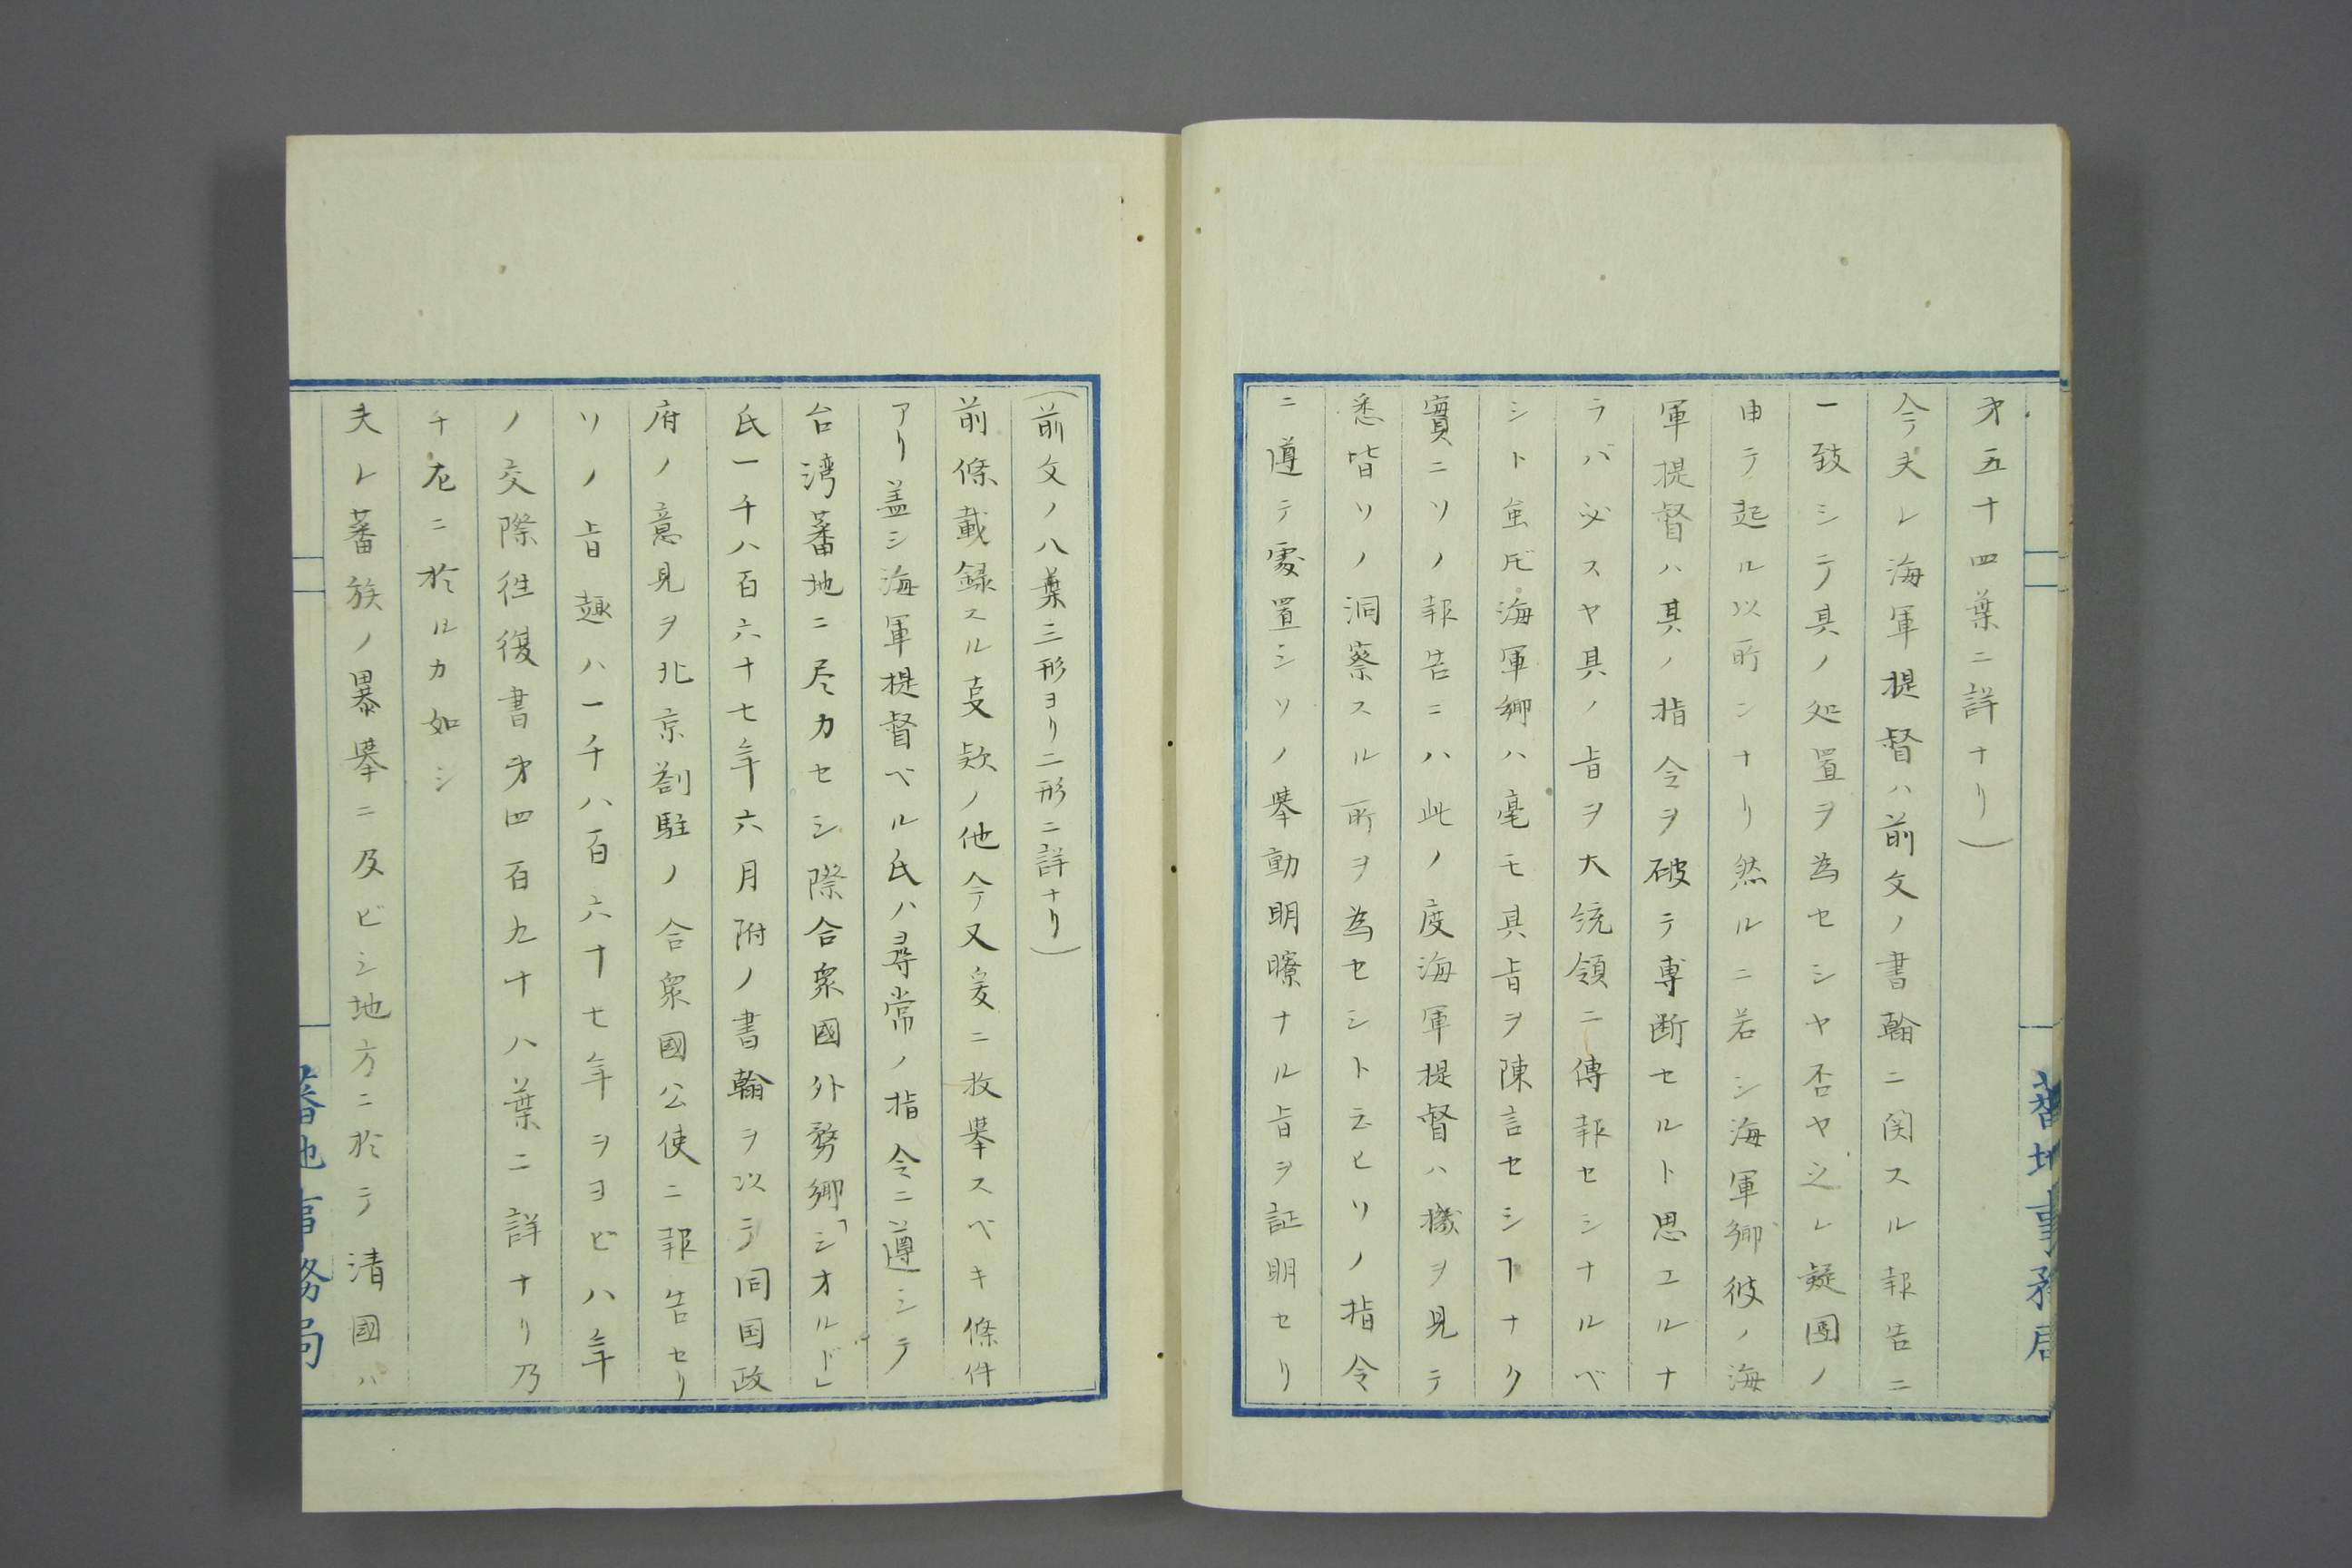 才五十四葉ニ詳ナリ)
今夫レ海軍提督ハ前文ノ書翰ニ関スル報告ニ
一致シテ其ノ処置ヲ為セシヤ否ヤ之レ疑團ノ
由テ起ル以所ンナリ然ルニ若シ海軍卿彼ノ海
軍提督ハ其ノ指令ヲ破テ専断セルト思エルナ
ラバ必スヤ其ノ旨ヲ大統領ニ傳報セシナルベ
シト虽𪜈海軍卿ハ毫モ其旨ヲ陳言セシヿナク
實ニソノ報告ニハ此ノ度海軍提督ハ機ヲ見テ
悉皆ソノ洞察スル所ヲ為セシト云ヒソノ指令
ニ遵テ処置シソノ挙動明瞭ナル旨ヲ証明セリ
(前文ノ八葉三形ヨリ二形ニ詳ナリ)
前條載録スル吏欵ノ他今又爰ニ枚挙スベキ條件
アリ盖シ海軍提督ベル氏ハ尋常ノ指令ニ遵シテ
台湾蕃地ニ尽力セシ際合衆國外務卿「シオルド」
氏一千八百六十七年六月附ノ書翰ヲ以テ同国政
府ノ意見ヲ北京劄駐ノ合衆國公使ニ報告セリ
ソノ旨趣ハ一千八百六十七年ヲヨビ八年
ノ交際徃復書才四百九十八葉ニ詳ナリ乃
チ左ニ於ルカ如シ
夫レ蕃族ノ暴挙ニ及ビシ地方ニ於テ清國ハ
蕃地事務局
蕃地事務局